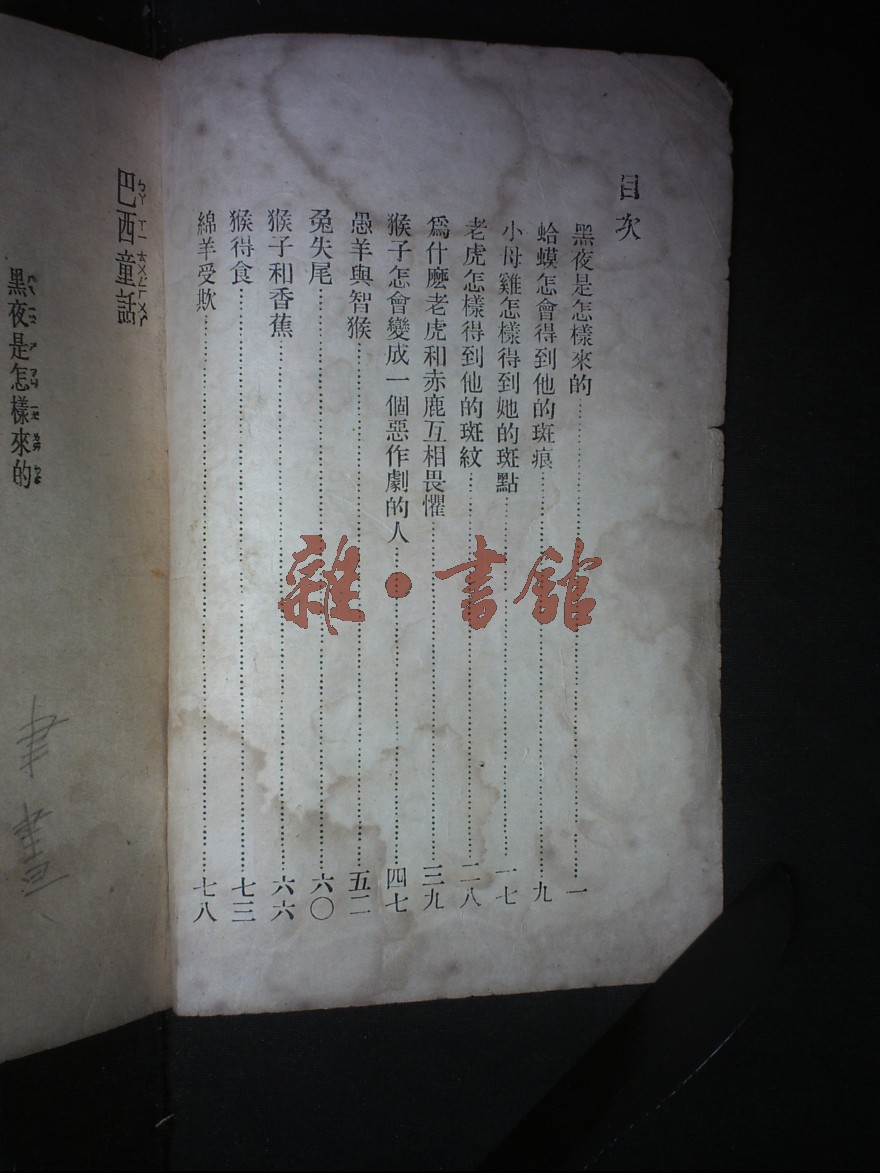 目次
黑夜是怎樣來的……一
蛤蟆怎會得到他的斑痕……九
小母雞怎樣得到她的斑點……一七
老虎怎樣得到他的斑紋……二八
爲什麽老虎和赤鹿互相畏懼……三九
猴子怎會變成一個惡作劇的人……四七
愚羊與智猴……五二
兔失尾……六〇
猴子和香蕉……六六
猴得食……七三
綿羊受欺……七八
巴西童話
黑夜是怎樣來的
雜·書館